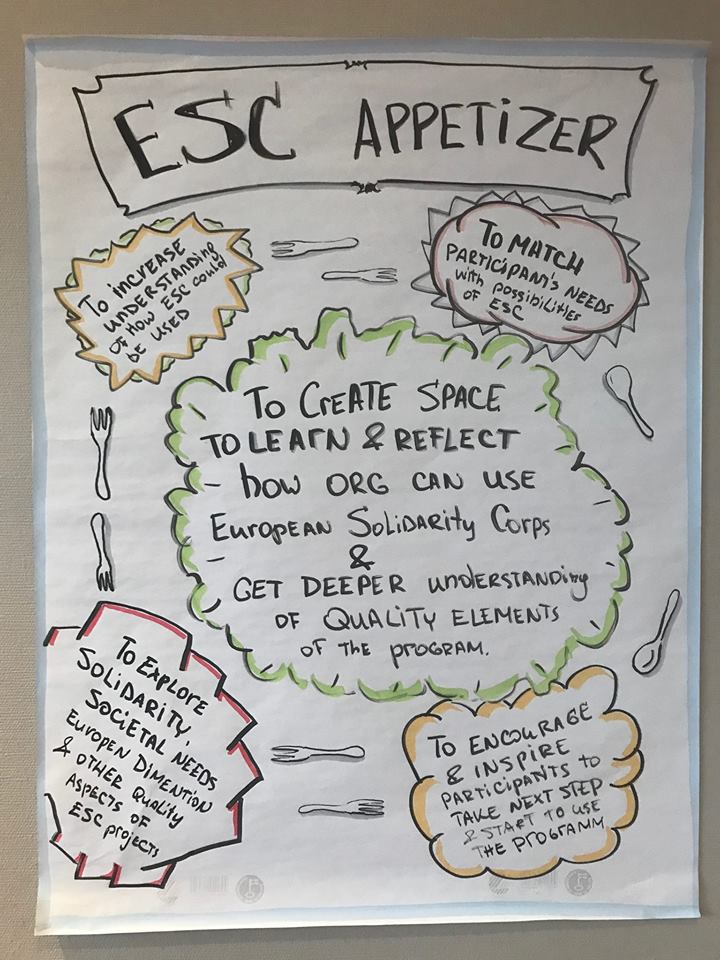 ESC APPETiZER
To iNCREASE
UNDERSTANDing
of HOW ESC could
BE USED
To MATCH
PARTiCiPANT's NEEDS
with possibilities
of ESC
To CreATE SPACE
TO LEArN & REFLECT
how ORG CAN USE
EuropEAN SoliDARity Corps
&
GET DEEPER unDERSTANDing
OF QUALiTY ELEMENTS
OF THE PROGRAM.
To ExploRE
SOLiDARiTY,
SOCiETAL NEEDS
EUROPEN DiMENTiON
& OTHER Quality
ASPECTS OF
ESC projects
To ENCOURAGE
& iNSPiRE
PARTiCiPANTS to
TAKE NEXT STEP
& START TO USE
THE PROGRAMM